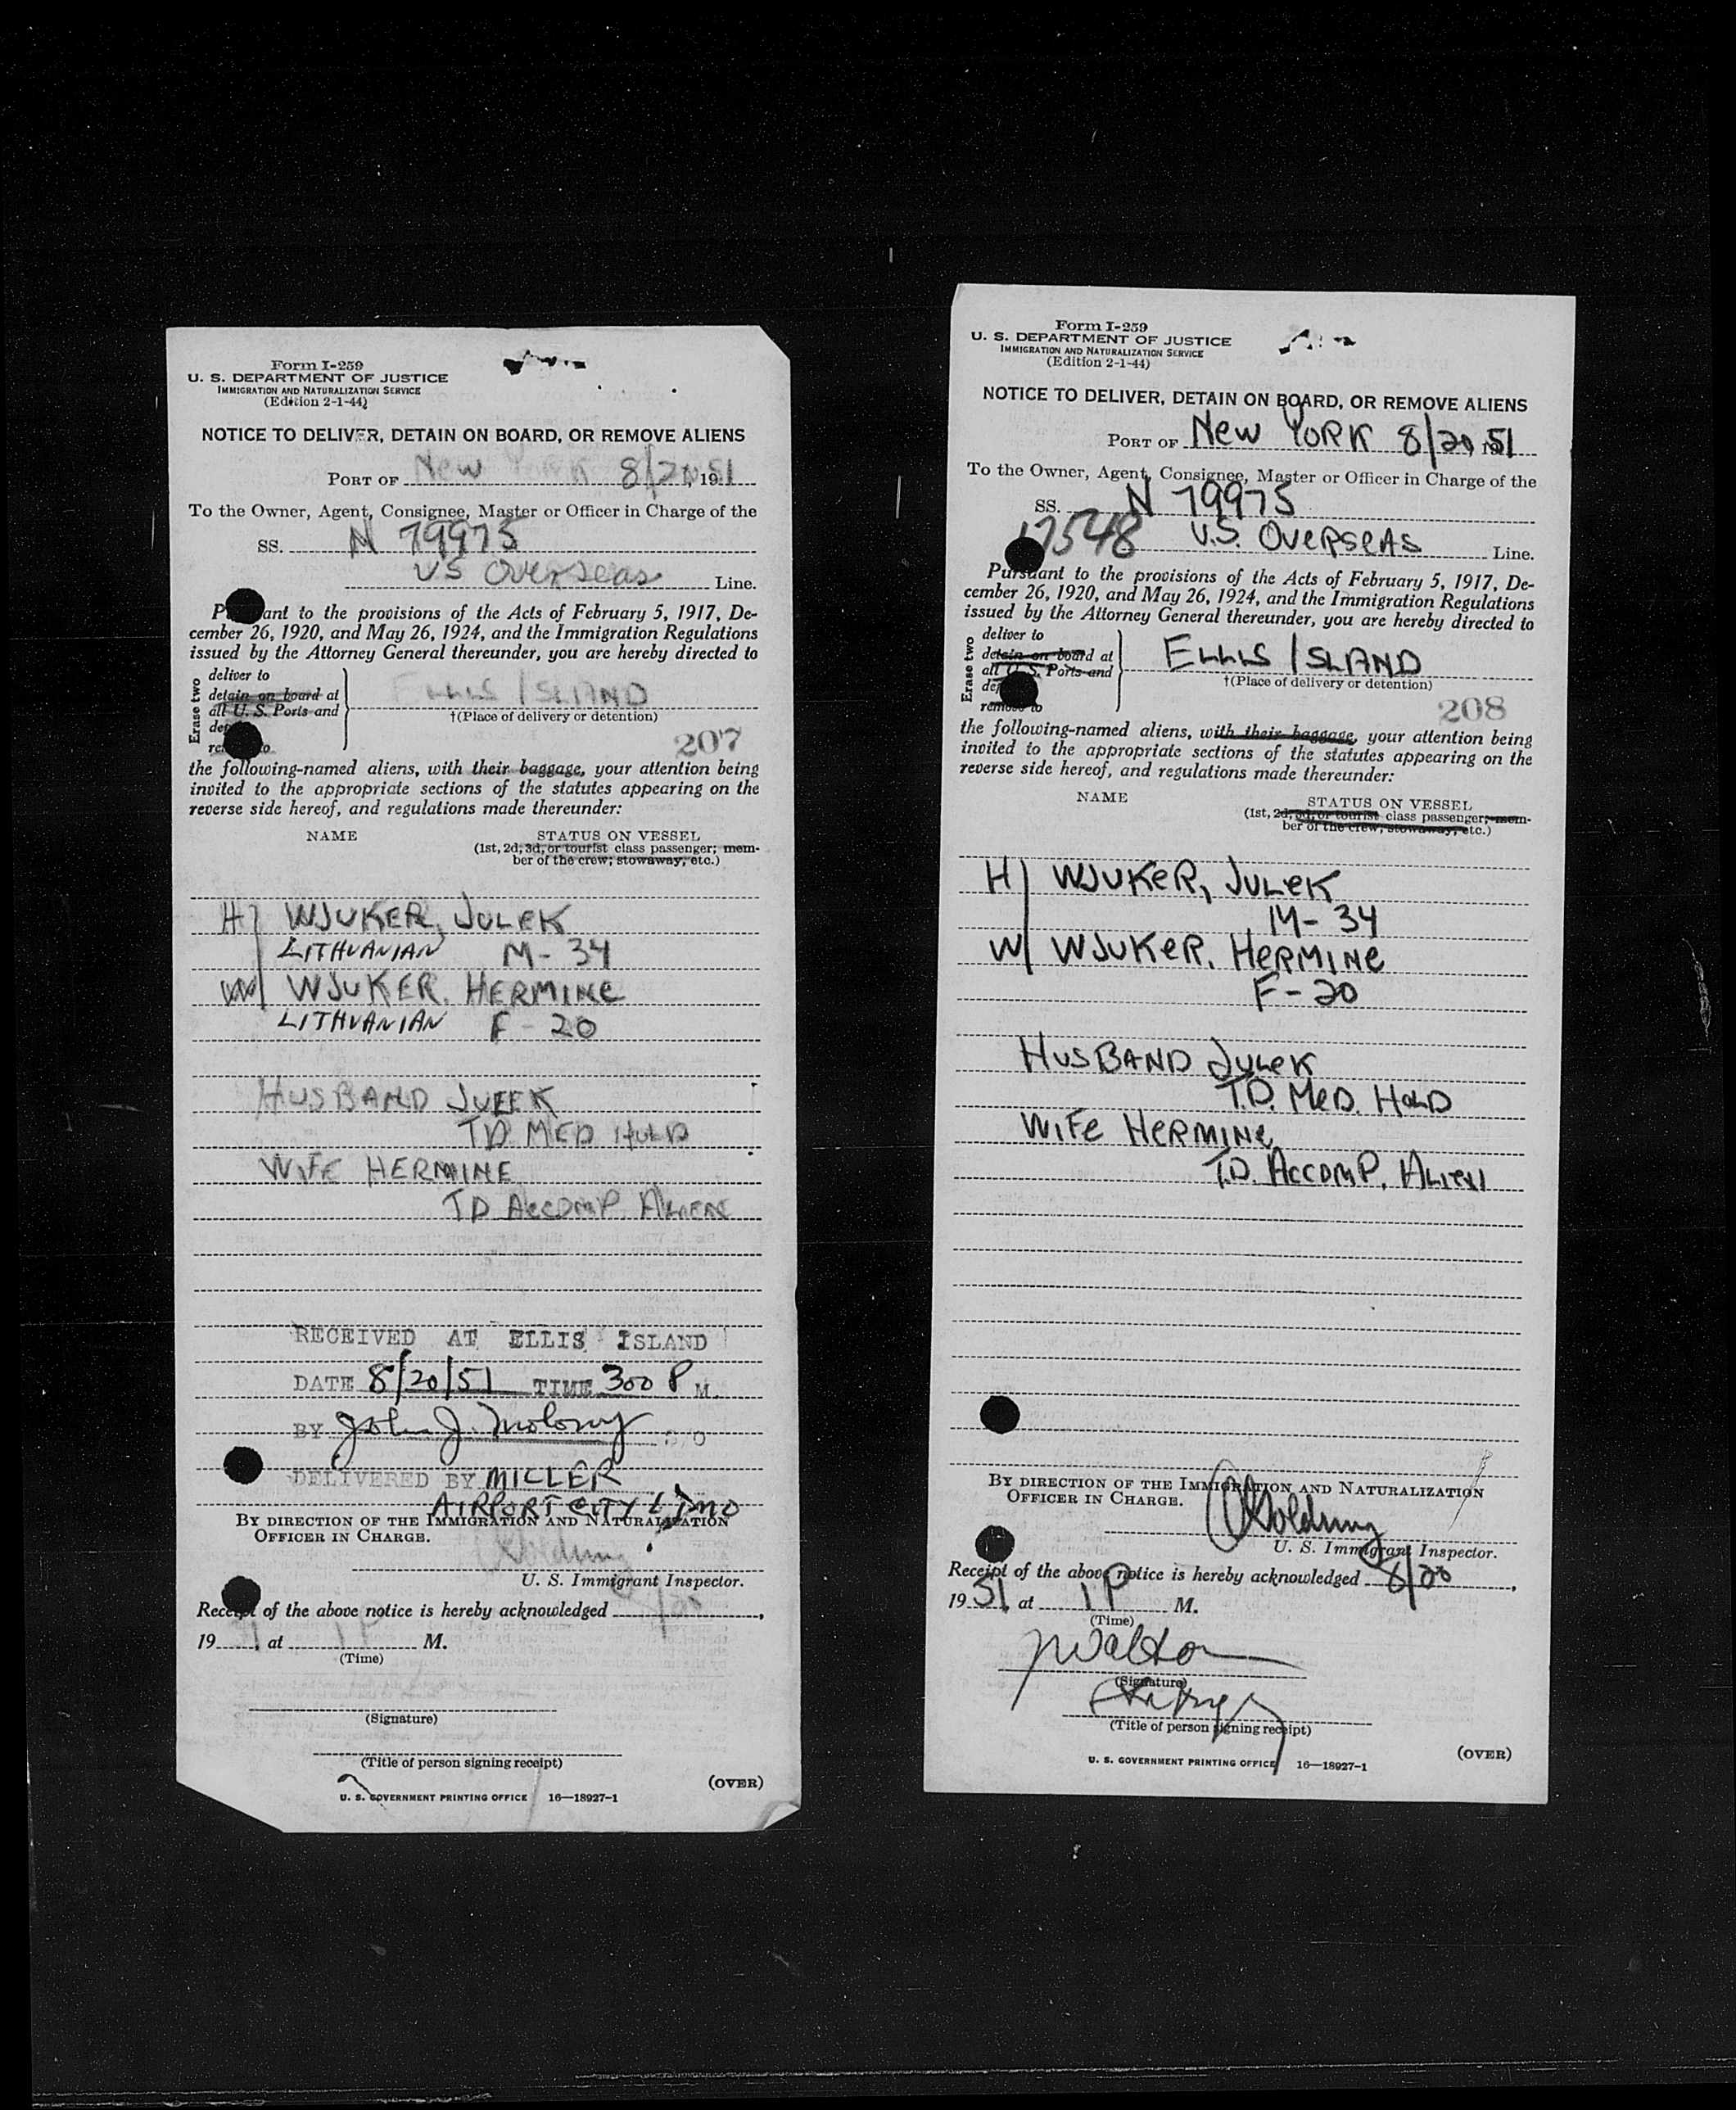 Form I-259
U. S. DEPARTMENT OF JUSTICE
IMMIGRATION AND NATURALIZATION SERVICE
(Edition 2-1-44)
NOTICE TO DELIVER, DETAIN ON BOARD, OR REMOVE ALIENS
PORT OF New York 8/20, 1951
To the Owner, Agent, Consignee, Master or Officer in Charge of the
SS. N 79975
US Overseas Line.
P ant to the provisions of the Acts of February 5, 1917, De-
cember 26, 1920, and May 26, 1924, and the Immigration Regulations
issued by the Attorney General thereunder, you are hereby directed to
Erase two
deliver to
detain on board at
all U. S. Ports and
ELLIS ISLAND
†(Place of delivery or detention)
207
the following-named aliens, with their baggage, your attention being
invited to the appropriate sections of the statutes appearing on the
reverse side hereof, and regulations made thereunder:
NAME STATUS ON VESSEL
(1st, 2d, 3d, or tourist class passenger; mem-
ber of the crew; stowaway, etc.)
H WJUKER, JULEK
LITHUANIAN M-34
W WJUKER, HERMINE
LITHUANIAN F-20
HUSBAND JULEK
TD MED HOLD
WIFE HERMINE
TD ACCOMP. ALIEN
RECEIVED AT ELLIS ISLAND
DATE 8/20/51 TIME 300 P M.
BY John J. Molony
DELIVERED BY MILLER
AIRPORT CITY LIMO
BY DIRECTION OF THE IMMIGRATION AND NATURALIZATION
OFFICER IN CHARGE.
Goldring
U. S. Immigrant Inspector.
Receipt of the above notice is hereby acknowledged
19 , at 1 P M.
(Time)
(Signature)
(Title of person signing receipt)
(OVER)
U. S. GOVERNMENT PRINTING OFFICE 16—18927-1
Form I-259
U. S. DEPARTMENT OF JUSTICE
IMMIGRATION AND NATURALIZATION SERVICE
(Edition 2-1-44)
NOTICE TO DELIVER, DETAIN ON BOARD, OR REMOVE ALIENS
PORT OF New YORK 8/20, 1951
To the Owner, Agent, Consignee, Master or Officer in Charge of the
SS. N 79975
17548 U.S. OVERSEAS Line.
Pursuant to the provisions of the Acts of February 5, 1917, De-
cember 26, 1920, and May 26, 1924, and the Immigration Regulations
issued by the Attorney General thereunder, you are hereby directed to
Erase two
deliver to
detain on board at
all U. S. Ports and
remove to
ELLIS ISLAND
†(Place of delivery or detention)
208
the following-named aliens, with their baggage, your attention being
invited to the appropriate sections of the statutes appearing on the
reverse side hereof, and regulations made thereunder:
NAME STATUS ON VESSEL
(1st, 2d, 3d, or tourist class passenger; mem-
ber of the crew, stowaway, etc.)
H WJUKER, JULEK
M-34
W WJUKER, HERMINE
F-20
HUSBAND JULEK
T.D. MED. HOLD
WIFE HERMINE
T.D. ACCOMP. ALIEN
BY DIRECTION OF THE IMMIGRATION AND NATURALIZATION
OFFICER IN CHARGE.
Goldring
U. S. Immigrant Inspector.
Receipt of the above notice is hereby acknowledged 8/20,
1951, at 1 P M.
(Time)
Walton
(Signature)
(Title of person signing receipt)
(OVER)
U. S. GOVERNMENT PRINTING OFFICE 16—18927-1